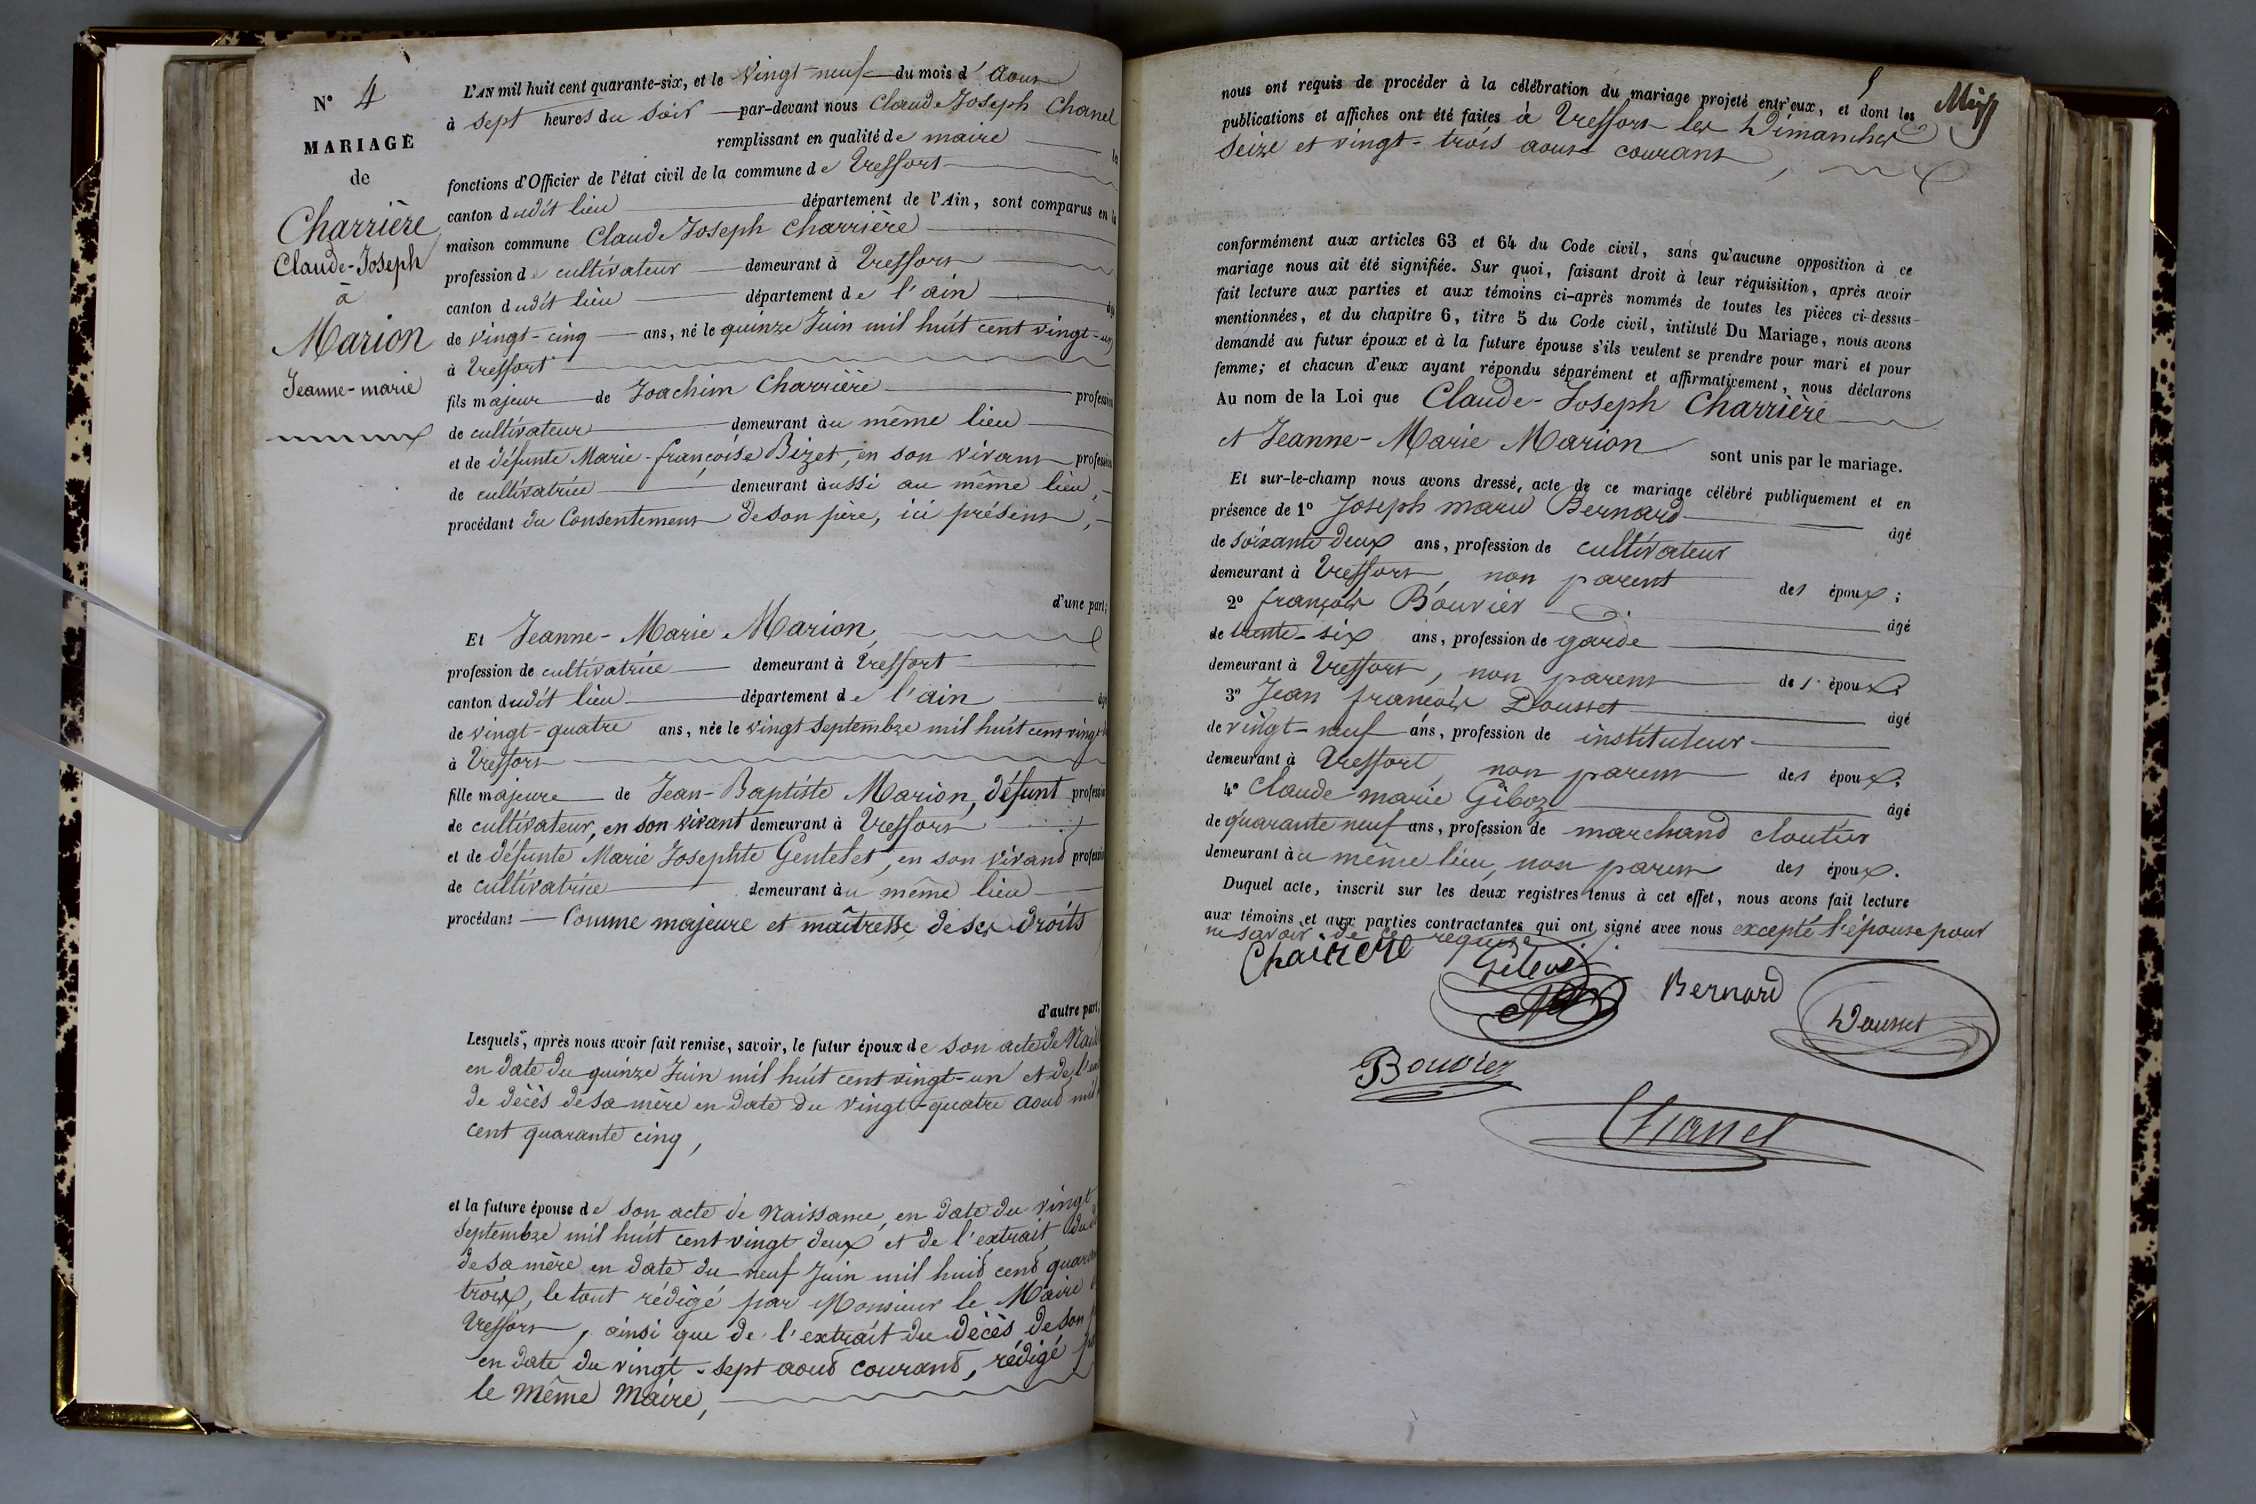 N° 4
MARIAGE
de
Charrière
Claude-Joseph
à
Marion
Jeanne-marie
L'AN mil huit cent quarante-six, et le vingt-neuf du mois d'aout
à sept heures du soir par-devant nous Claude Joseph Chanel
remplissant en qualité de maire la
fonctions d'Officier de l'état civil de la commune de Treffort
canton dudit lieu département de l'Ain, sont comparus en la
maison commune Claude Joseph Charrière
profession de cultivateur demeurant à Treffort
canton dudit lieu département de l'ain
de vingt-cinq ans, né le quinze Juin mil huit cent vingt-un
à Treffort
fils majeur de Joachim Charrière profession
de cultivateur demeurant au même lieu
et de défunte Marie-françoise Bizet, en son vivant profession
de cultivatrice demeurant aussi au même lieu,
procédant du Consentement de son père, ici présent,
d'une part;
Et Jeanne-Marie Marion
profession de cultivatrice demeurant à Treffort
canton dudit lieu département de l'ain
de vingt-quatre ans, née le vingt septembre mil huit cent vingt
à Treffort
fille majeure de Jean-Baptiste Marion, défunt profession
de cultivateur, en son vivant demeurant à Treffort
et de défunte Marie Josephte Gentelet, en son vivant profession
de cultivatrice demeurant au même lieu
procédant Comme majeure et maîtresse de ses droits
d'autre part,
Lesquels, après nous avoir fait remise, savoir, le futur époux de son acte de
en date du quinze Juin mil huit cent vingt-un et de
de décès de sa mère en date du vingt-quatre aout mil
cent quarante cinq,
et la future épouse de son acte de Naissance, en date du vingt
septembre mil huit cent vingt deux et de l'extrait du
de sa mère en date du neuf Juin mil huit cent
trois, le tout rédigé par Monsieur le Maire
Treffort, ainsi que de l'extrait du décès de son
en date du vingt-sept aout courant, rédigé
le même Maire,
nous ont requis de procéder à la célébration du mariage projeté entr'eux, et dont les
publications et affiches ont été faites à Treffort les Dimanches
seize et vingt-trois aout courant,
conformément aux articles 63 et 64 du Code civil, sans qu'aucune opposition à ce
mariage nous ait été signifiée. Sur quoi, faisant droit à leur réquisition, après avoir
fait lecture aux parties et aux témoins ci-après nommés de toutes les pièces ci-dessus
mentionnées, et du chapitre 6, titre 5 du Code civil, intitulé Du Mariage, nous avons
demandé au futur époux et à la future épouse s'ils veulent se prendre pour mari et pour
femme; et chacun d'eux ayant répondu séparément et affirmativement, nous déclarons
Au nom de la Loi que Claude-Joseph Charrière
et Jeanne-Marie Marion sont unis par le mariage.
Et sur-le-champ nous avons dressé, acte de ce mariage célébré publiquement et en
présence de 1° Joseph marie Bernard âgé
de soixante deux ans, profession de cultivateur
demeurant à Treffort, non parent des époux;
2° françois Bouvier âgé
de trente-six ans, profession de garde
demeurant à Treffort, non parent des époux;
3° Jean françois Dousset âgé
de vingt-neuf ans, profession de instituteur
demeurant à Treffort, non parent des époux;
4° Claude marie Giboz âgé
de quarante neuf ans, profession de marchand cloutier
demeurant au même lieu, non parent des époux.
Duquel acte, inscrit sur les deux registres tenus à cet effet, nous avons fait lecture
aux témoins et aux parties contractantes qui ont signé avec nous excepté l'épouse pour
ne savoir. de ce requise
Charriere
Bernard
Dousset
Bouvier
Chanel